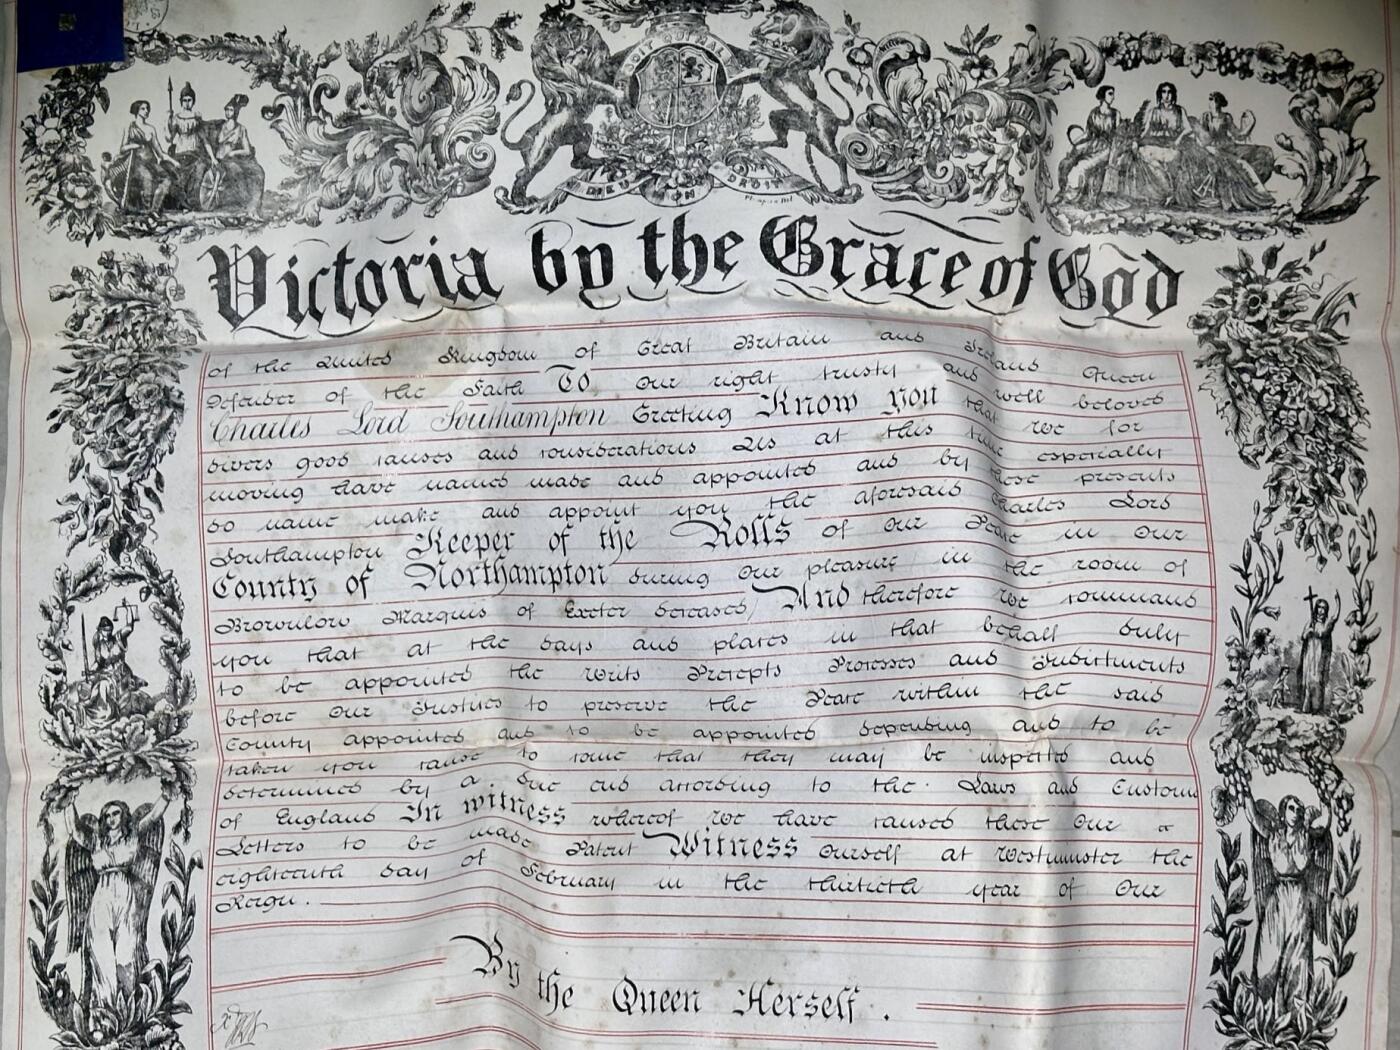 SOIT QUI MAL
DIEU ON DROIT
Victoria by the Grace of God
of the United Kingdom of Great Britain and Ireland Queen
Defender of the Faith To Our right trusty and well beloved
Charles Lord Southampton Greeting Know you that we for
divers good causes and considerations Us at this time especially
moving have named made and appointed and by these presents
do name make and appoint you the aforesaid Charles Lord
Southampton Keeper of the Rolls of Our Peace in Our
County of Northampton during Our pleasure in the room of
Brownlow Marquis of Exeter deceased And therefore we command
you that at the days and places in that behalf duly
to be appointed the Writs Precepts Processes and Indictments
before Our Justices to preserve the Peace within the said
County appointed and to be appointed depending and to be
taken you cause to come that they may be inspected and
determined by a due end according to the Laws and Customs
of England In witness whereof we have caused these Our
Letters to be made Patent Witness Ourself at Westminster the
eighteenth day of February in the thirtieth year of Our
Reign.
By the Queen Herself.